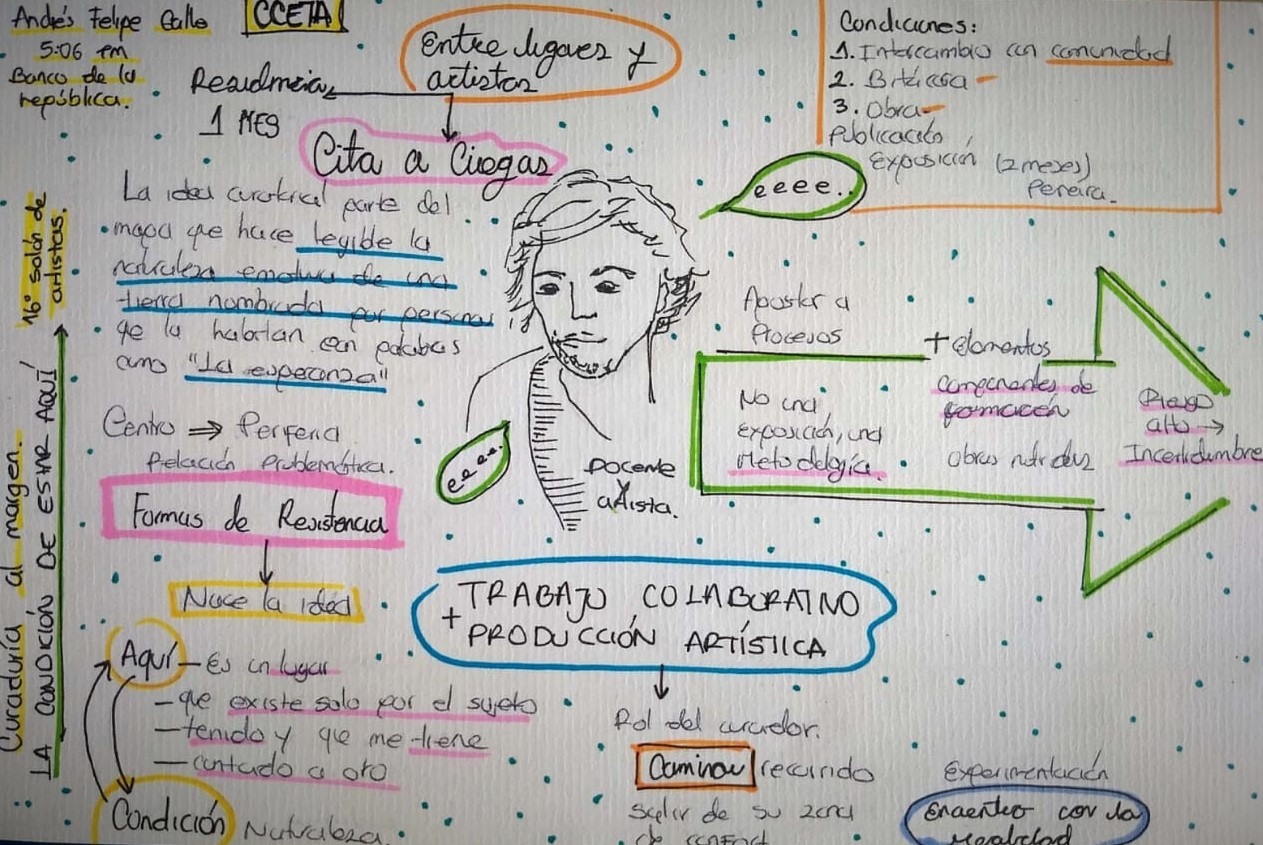 Andrés Felipe Calle
5:06 pm
Banco de la
república.
CCETA
Entre lugares y
artistas
Residencia
1 MES
Cita a Ciegas
Condiciones:
1. Intercambio con comunidad
2. Bitácora
3. Obra
Publicación
Exposición (2 meses)
Pereira.
eeee..
La idea curatorial parte del
mapa que hace legible la
naturaleza emotiva de una
tierra nombrada por personas
que la habitan con palabas
como "La esperanza"
16° salón de
artistas.
Curaduría al margen.
LA CONDICIÓN DE ESTAR AQUÍ
Centro ⇒ Periferia
Relación problemática.
Formas de Resistencia
Nace la idea
Aquí — Es un lugar
— que existe solo por el sujeto
— tenido y que me tiene
— contado a otro
Condición Naturaleza.
ee ee..
Docente
y
artista.
Apostar a
Procesos
No una
exposición, una
Metodología.
+ elementos
componentes de
formación
obras nutridas
Riesgo
alto →
Incertidumbre
TRABAJO COLABORATIVO
+
PRODUCCIÓN ARTÍSTICA
Rol del curador.
Caminar recorrido
Salir de su zona
de confort
Experimentación
encuentro con la
realidad